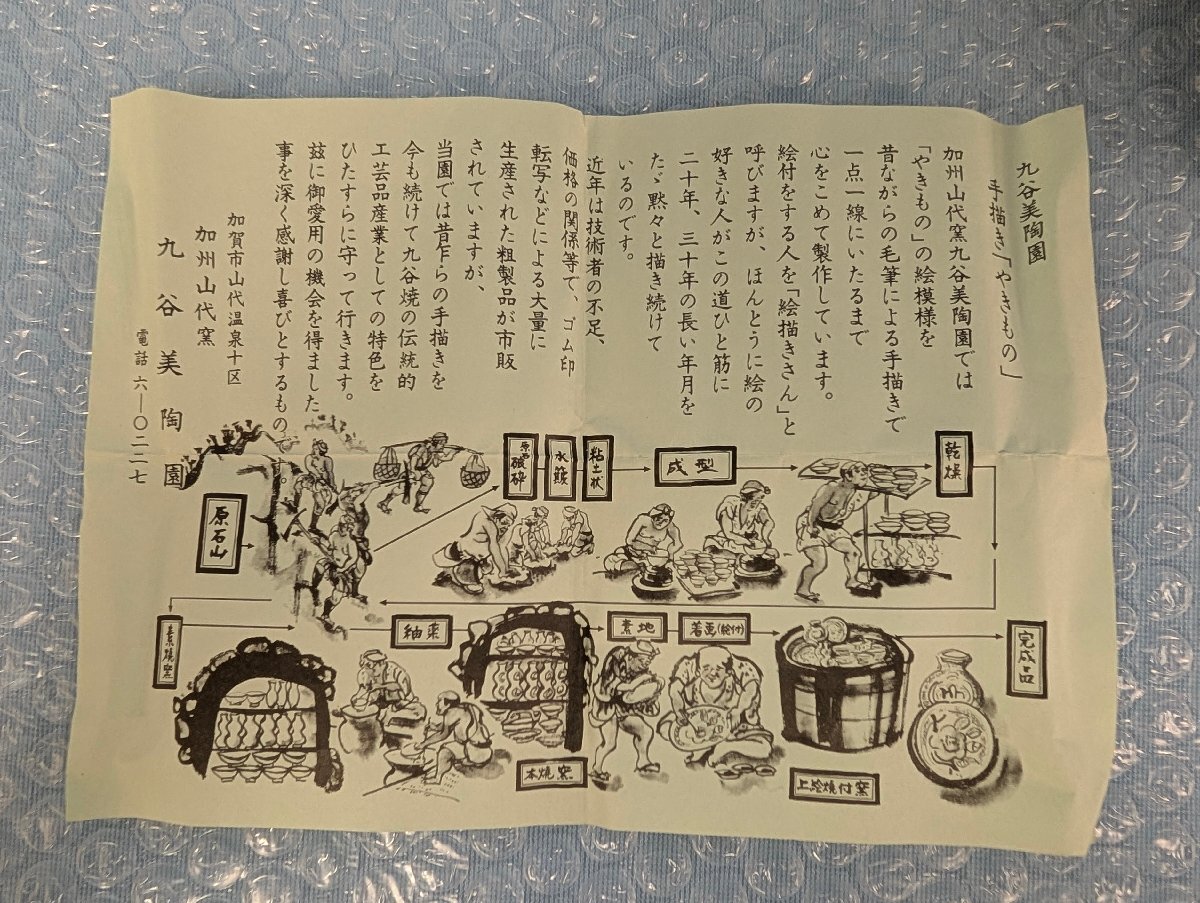 九谷美陶園
手描き「やきもの」
加州山代窯九谷美陶園では
「やきもの」の絵模様を
昔ながらの毛筆による手描きで
一点一線にいたるまで
心をこめて製作しています。
絵付をする人を「絵描きさん」と
呼びますが、ほんとうに絵の
好きな人がこの道ひと筋に
二十年、三十年の長い年月を
たゞ黙々と描き続けて
いるのです。
近年は技術者の不足、
価格の関係等で、ゴム印
転写などによる大量に
生産された粗製品が市販
されていますが、
当園では昔乍らの手描きを
今も続けて九谷焼の伝統的
工芸品産業としての特色を
ひたすらに守って行きます。
玆に御愛用の機会を得ました
事を深く感謝し喜びとするもので
す。
加賀市山代温泉十区
加州山代窯
九谷美陶園
電話 六―〇二二七
原石山
原石砿砕
水簸
粘土状
成型
乾燥
素焼窯
釉薬
本焼窯
素地
着画(絵付)
上絵焼付窯
完成品